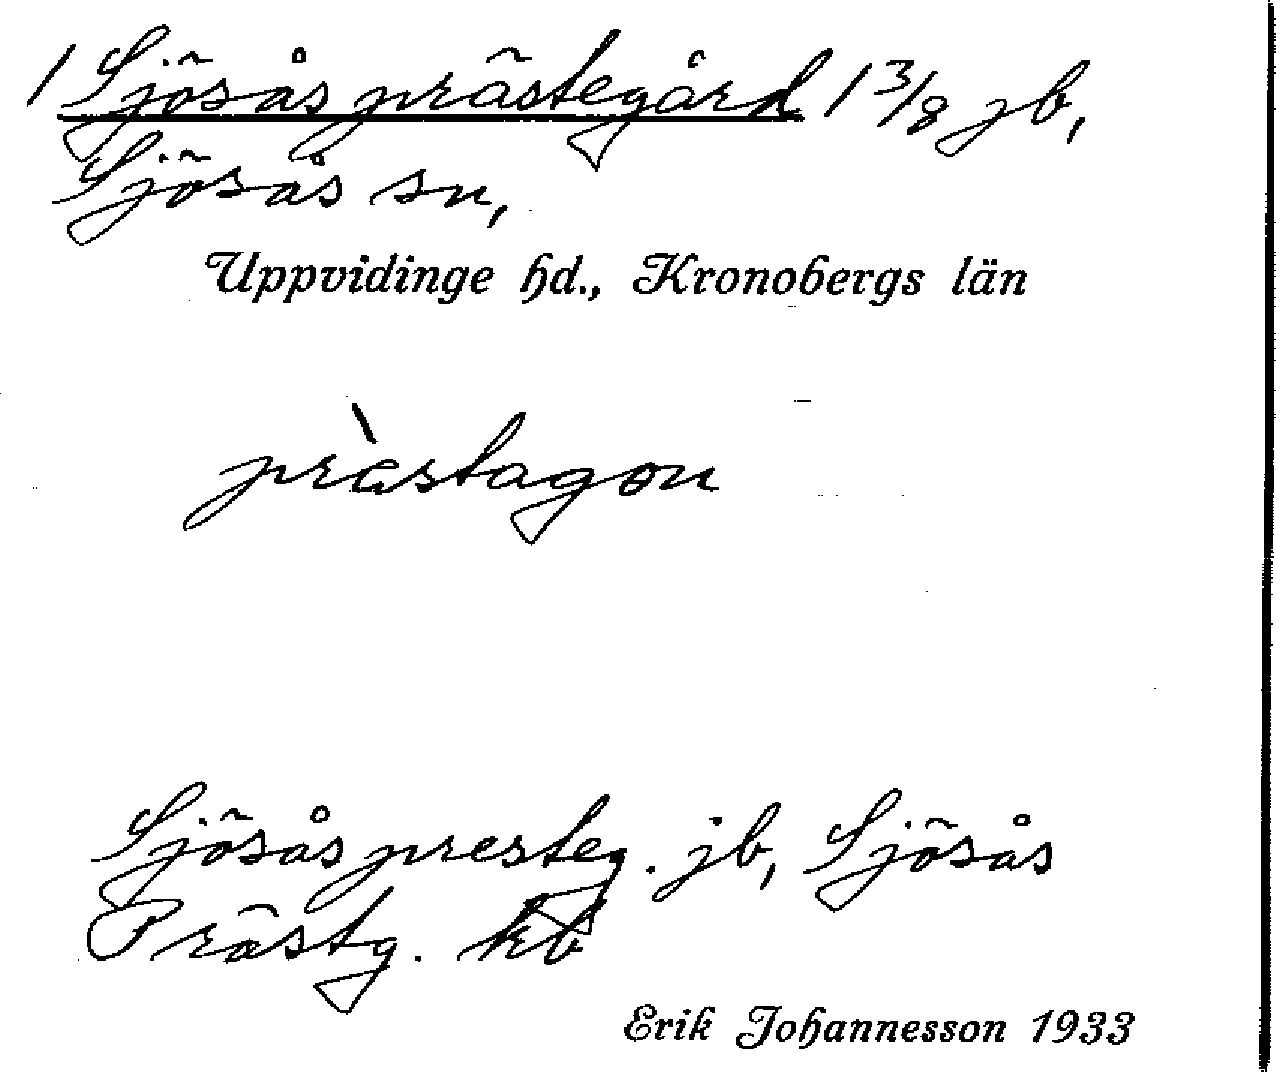 1 Sjösås prästegård 1 3/8 jb,
Sjösås sn,
Uppvidinge hd., Kronobergs län
pràstagon
Sjösås presteg. jb, Sjösås
Prästg. kb
Erik Johannesson 1933